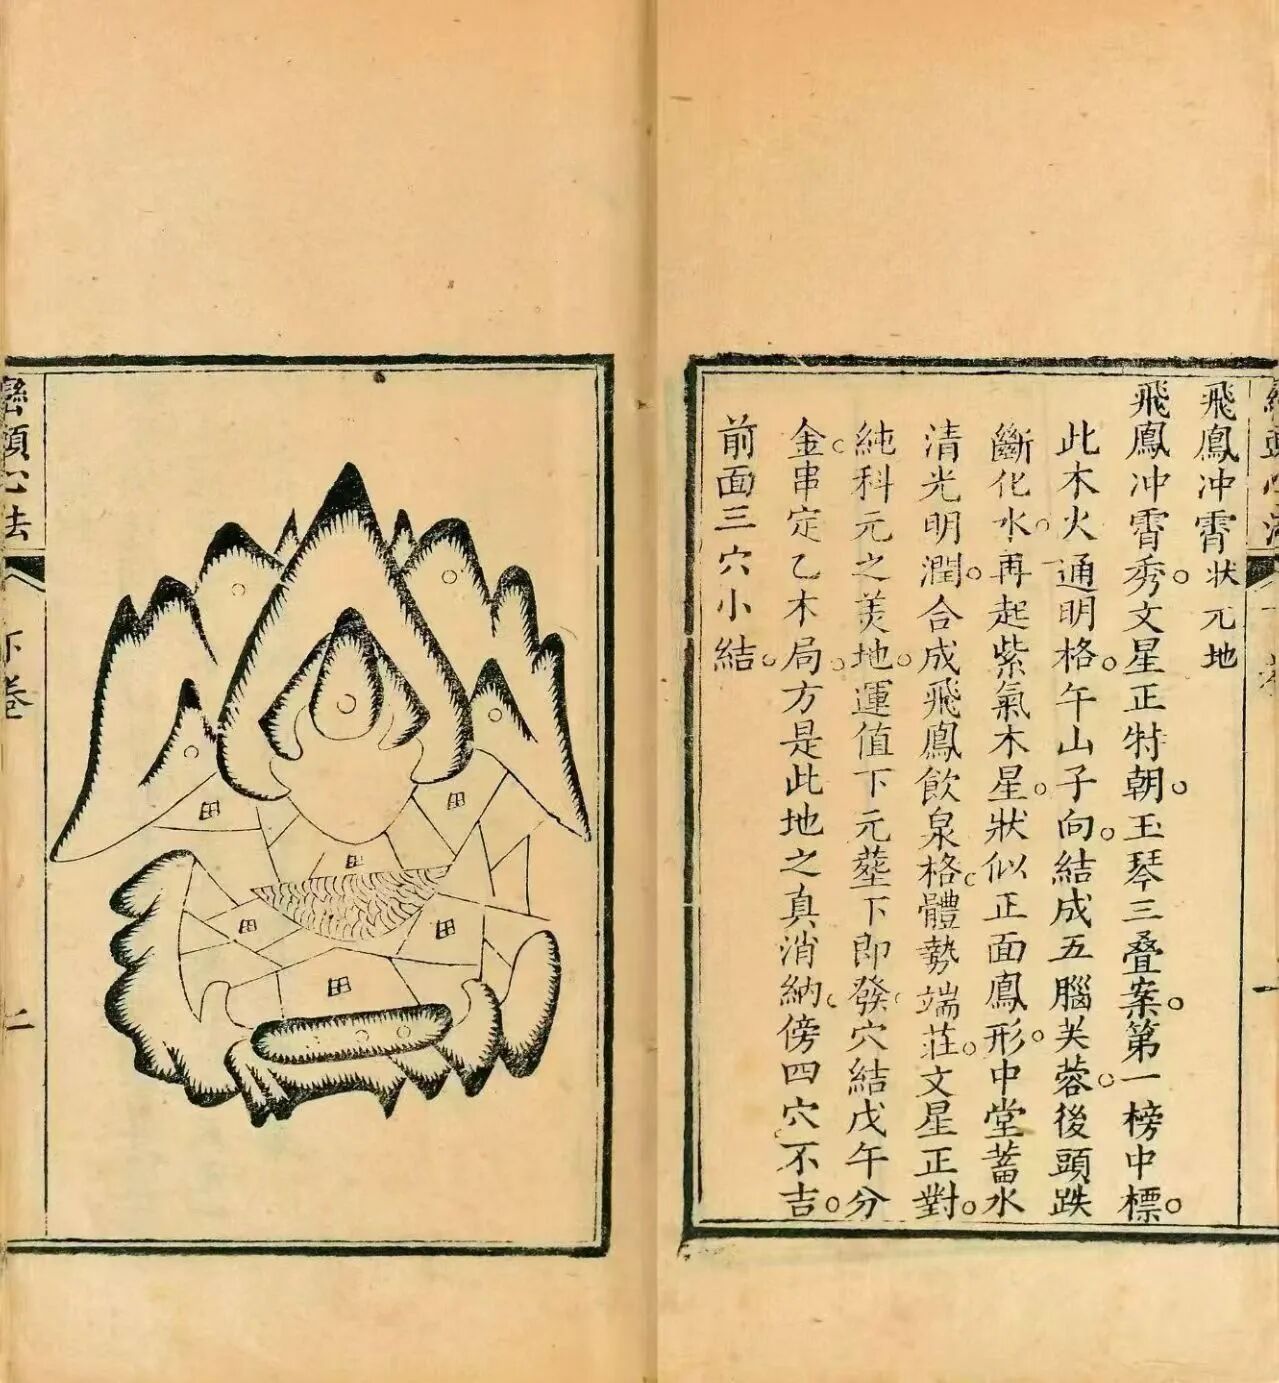 飛鳳冲霄狀元地
飛鳳冲霄秀。文星正特朝。玉琴三叠案。第一榜中標。
此木火通明格。午山子向。結成五腦芙蓉。後頭跌
斷化水。再起紫氣木星。狀似正面鳳形。中堂蓄水
清光明潤。合成飛鳳飲泉格。體勢端莊。文星正對。
純科元之美地。運值下元塟下即發。穴結戊午分
金。串定乙木局。方是此地之真消納。傍四穴不吉。
前面三穴小結。
田
田
田
田
田
田
巒頭心法
下卷
二